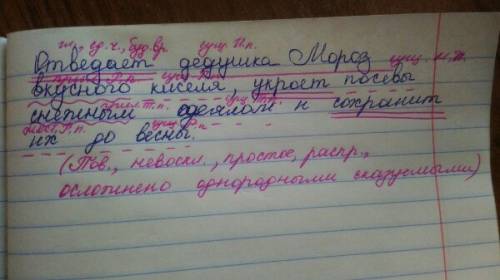 гл., ед.ч., буд.вр. сущ. И.п.
Отведает дедушка Мороз
прил. Р.п. сущ. сущ. И.п.
вкусного киселя, укроет посевы
прил. Т.п. сущ. Т.п.
снежным одеялом и сохранит
мест. Р.п. сущ. Р.п.
их до весны.
(Пов., невоскл., простое, распр.,
осложнено однородными сказуемыми)